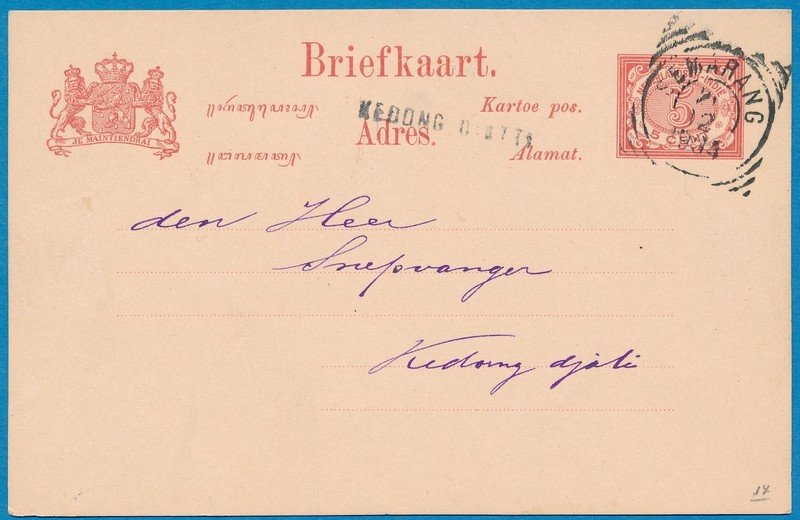 Briefkaart.
JE MAINTIENDRAI
Kartoe pos.
KEDONG DJATTI
Adres.
Alamat.
SEMARANG
den Heer
Snepvanger
Kedong djati